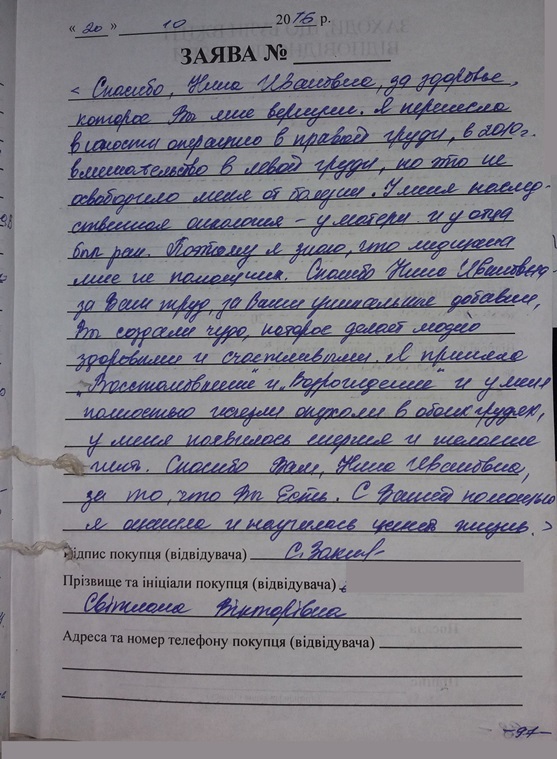 « 20 » 10 20 16 р.
ЗАЯВА №
< Спасибо, Нина Ивановна, за здоровье,
которое Вы мне вернули. Я перенесла
в юности операцию в правой груди, в 2010 г.
вмешательство в левой груди, но это не
освободило меня от болезни. У меня наслед-
ственная онкология - у матери и у отца
был рак. Поэтому я знаю, что медицина
мне не помощник. Спасибо Нина Ивановна
за Ваш труд, за Ваши уникальные добавки,
Вы создали чудо, которое делает людей
здоровыми и счастливыми. Я приняла
"Восстановление" и "Возрождение" и у меня
полностью исчезли опухоли в обоих грудях,
у меня появилась энергия и желание
жить. Спасибо Вам, Нина Ивановна,
за то, что Вы Есть. С Вашей помощью
я ожила и научилась ценить жизнь. >
Підпис покупця (відвідувача)
Прізвище та ініціали покупця (відвідувача)
Світлана Вікторівна
Адреса та номер телефону покупця (відвідувача)
-97-